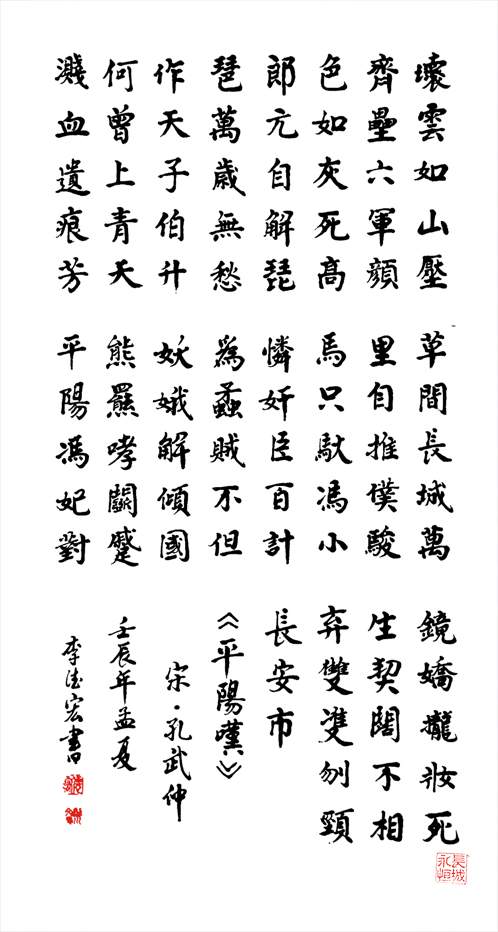 壞雲如山壓
齊壘六軍顏
色如灰死高
郎亢自解琵
琶萬歲無愁
作天子伯升
何曾上青天
濺血遺痕芳
草間長城萬
里自推撲駿
馬只馱馮小
憐奸臣百計
為蟊賊不但
妖娥解傾國
熊羆哮闞蹙
平陽馮妃對
鏡嬌攏妝死
生契闊不相
弃雙雙刎頸
長安市
《平陽嘆》
宋·孔武仲
壬辰年孟夏
李德宏書
長城永恒